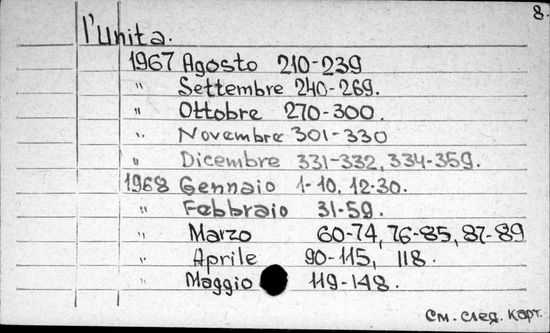 8.
l'Unita.
1967 Agosto 210-239
" Settembre 240-269.
" Ottobre 270-300.
" Novembre 301-330
" Dicembre 331-332, 334-359.
1968 Gennaio 1-10, 12-30.
" Febbraio 31-59.
" Marzo 60-74, 76-85, 87-89
" Aprile 90-115, 118.
" Maggio 119-148.
См. след. карт.